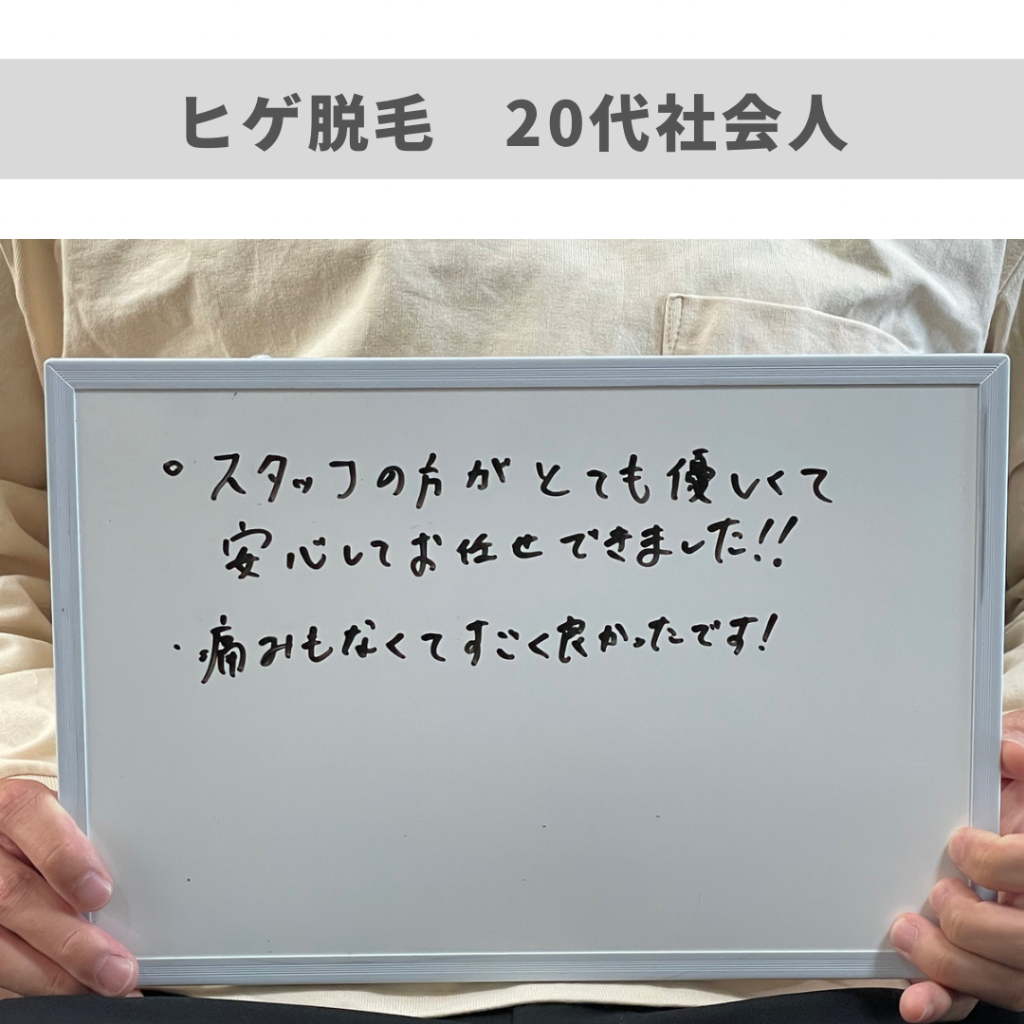 ヒゲ脱毛　20代社会人
。スタッフの方がとても優しくて
安心してお任せできました!!
・痛みもなくてすごく良かったです!